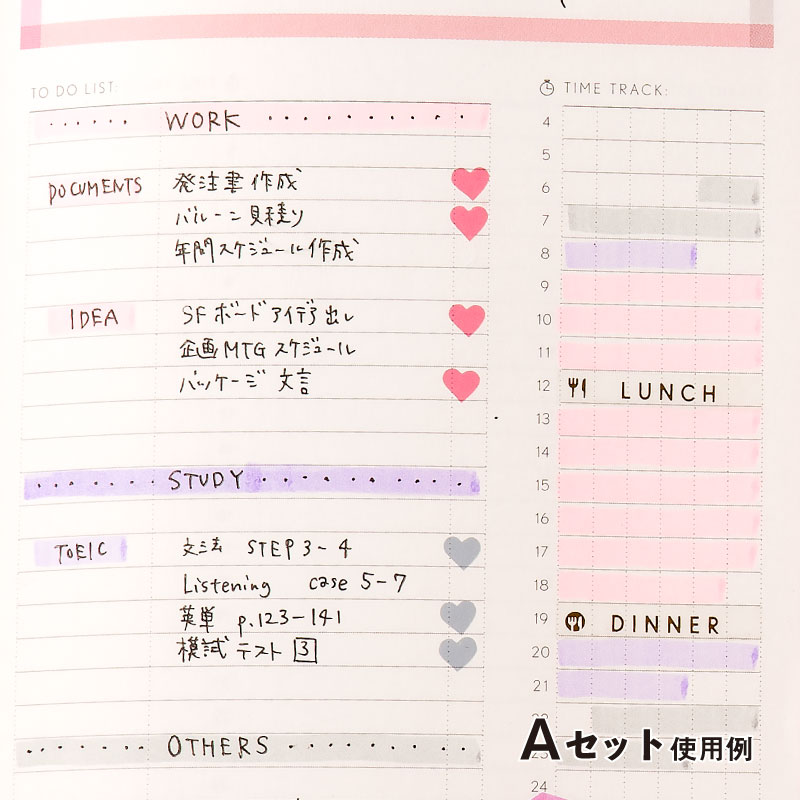 TO DO LIST:
WORK
DOCUMENTS 発注書作成
バルーン見積り
年間スケジュール作成
IDEA SFボードアイデア出し
企画MTGスケジュール
パッケージ文言
STUDY
TOEIC 文法 STEP 3-4
Listening case 5-7
英単 p.123-141
模試テスト 3
OTHERS
TIME TRACK:
4
5
6
7
8
9
10
11
12 LUNCH
13
14
15
16
17
18
19 DINNER
20
21
22
23
24
Aセット使用例